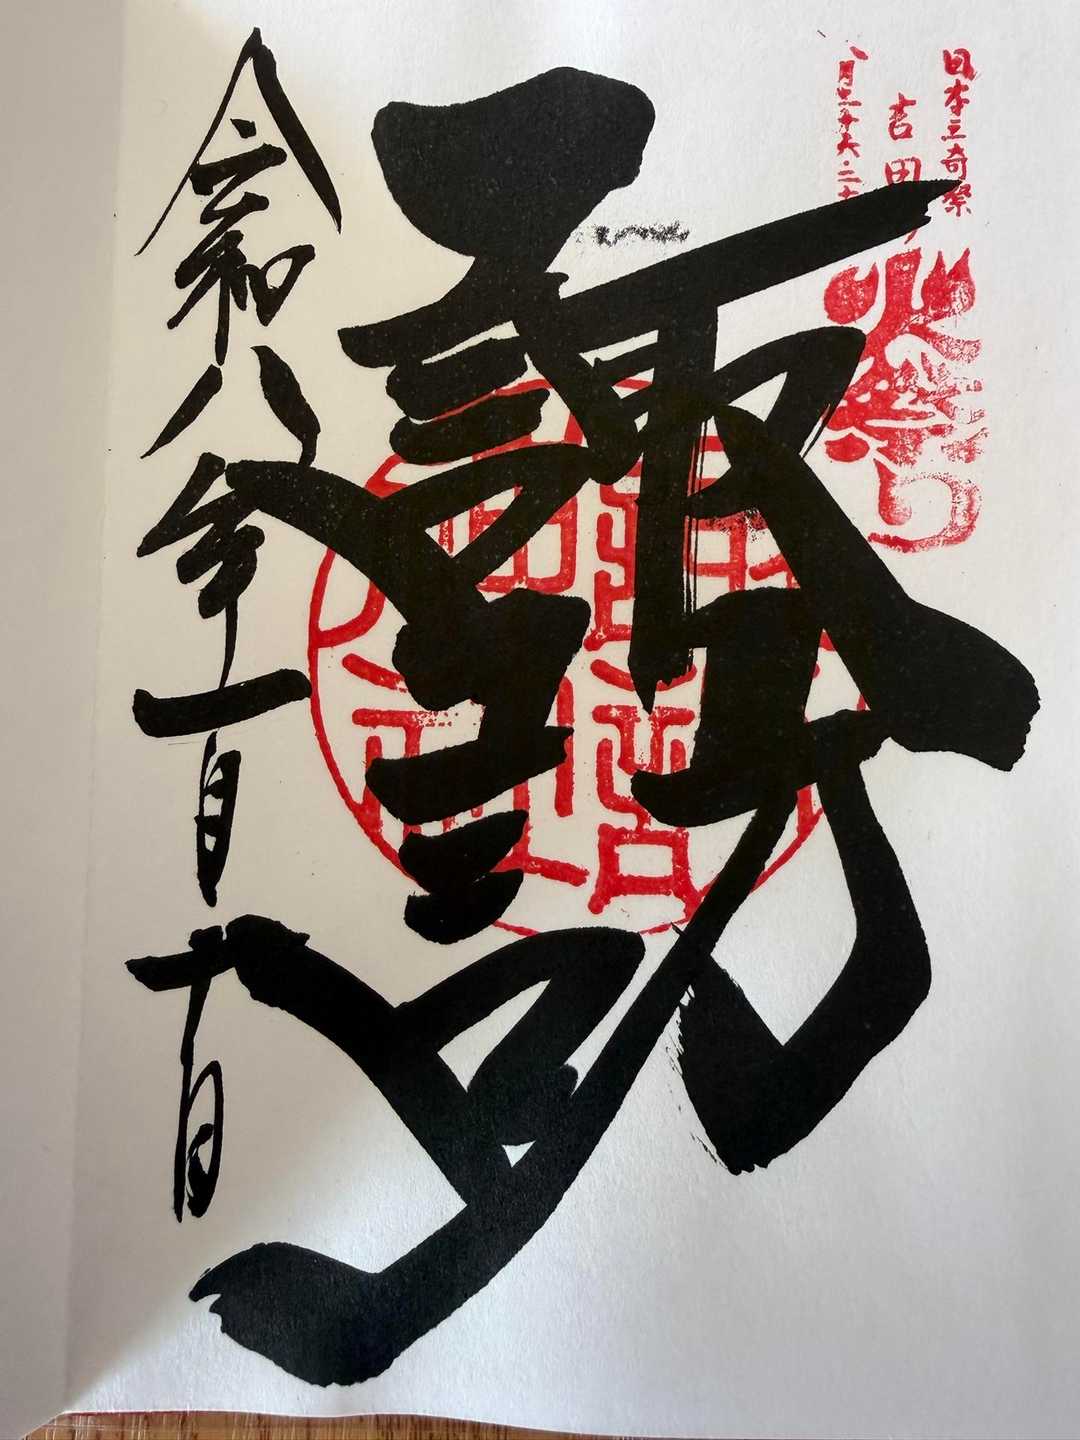 日本三奇祭
吉田の火祭り
八月二十六・二十
諏訪
令和八年一月十日